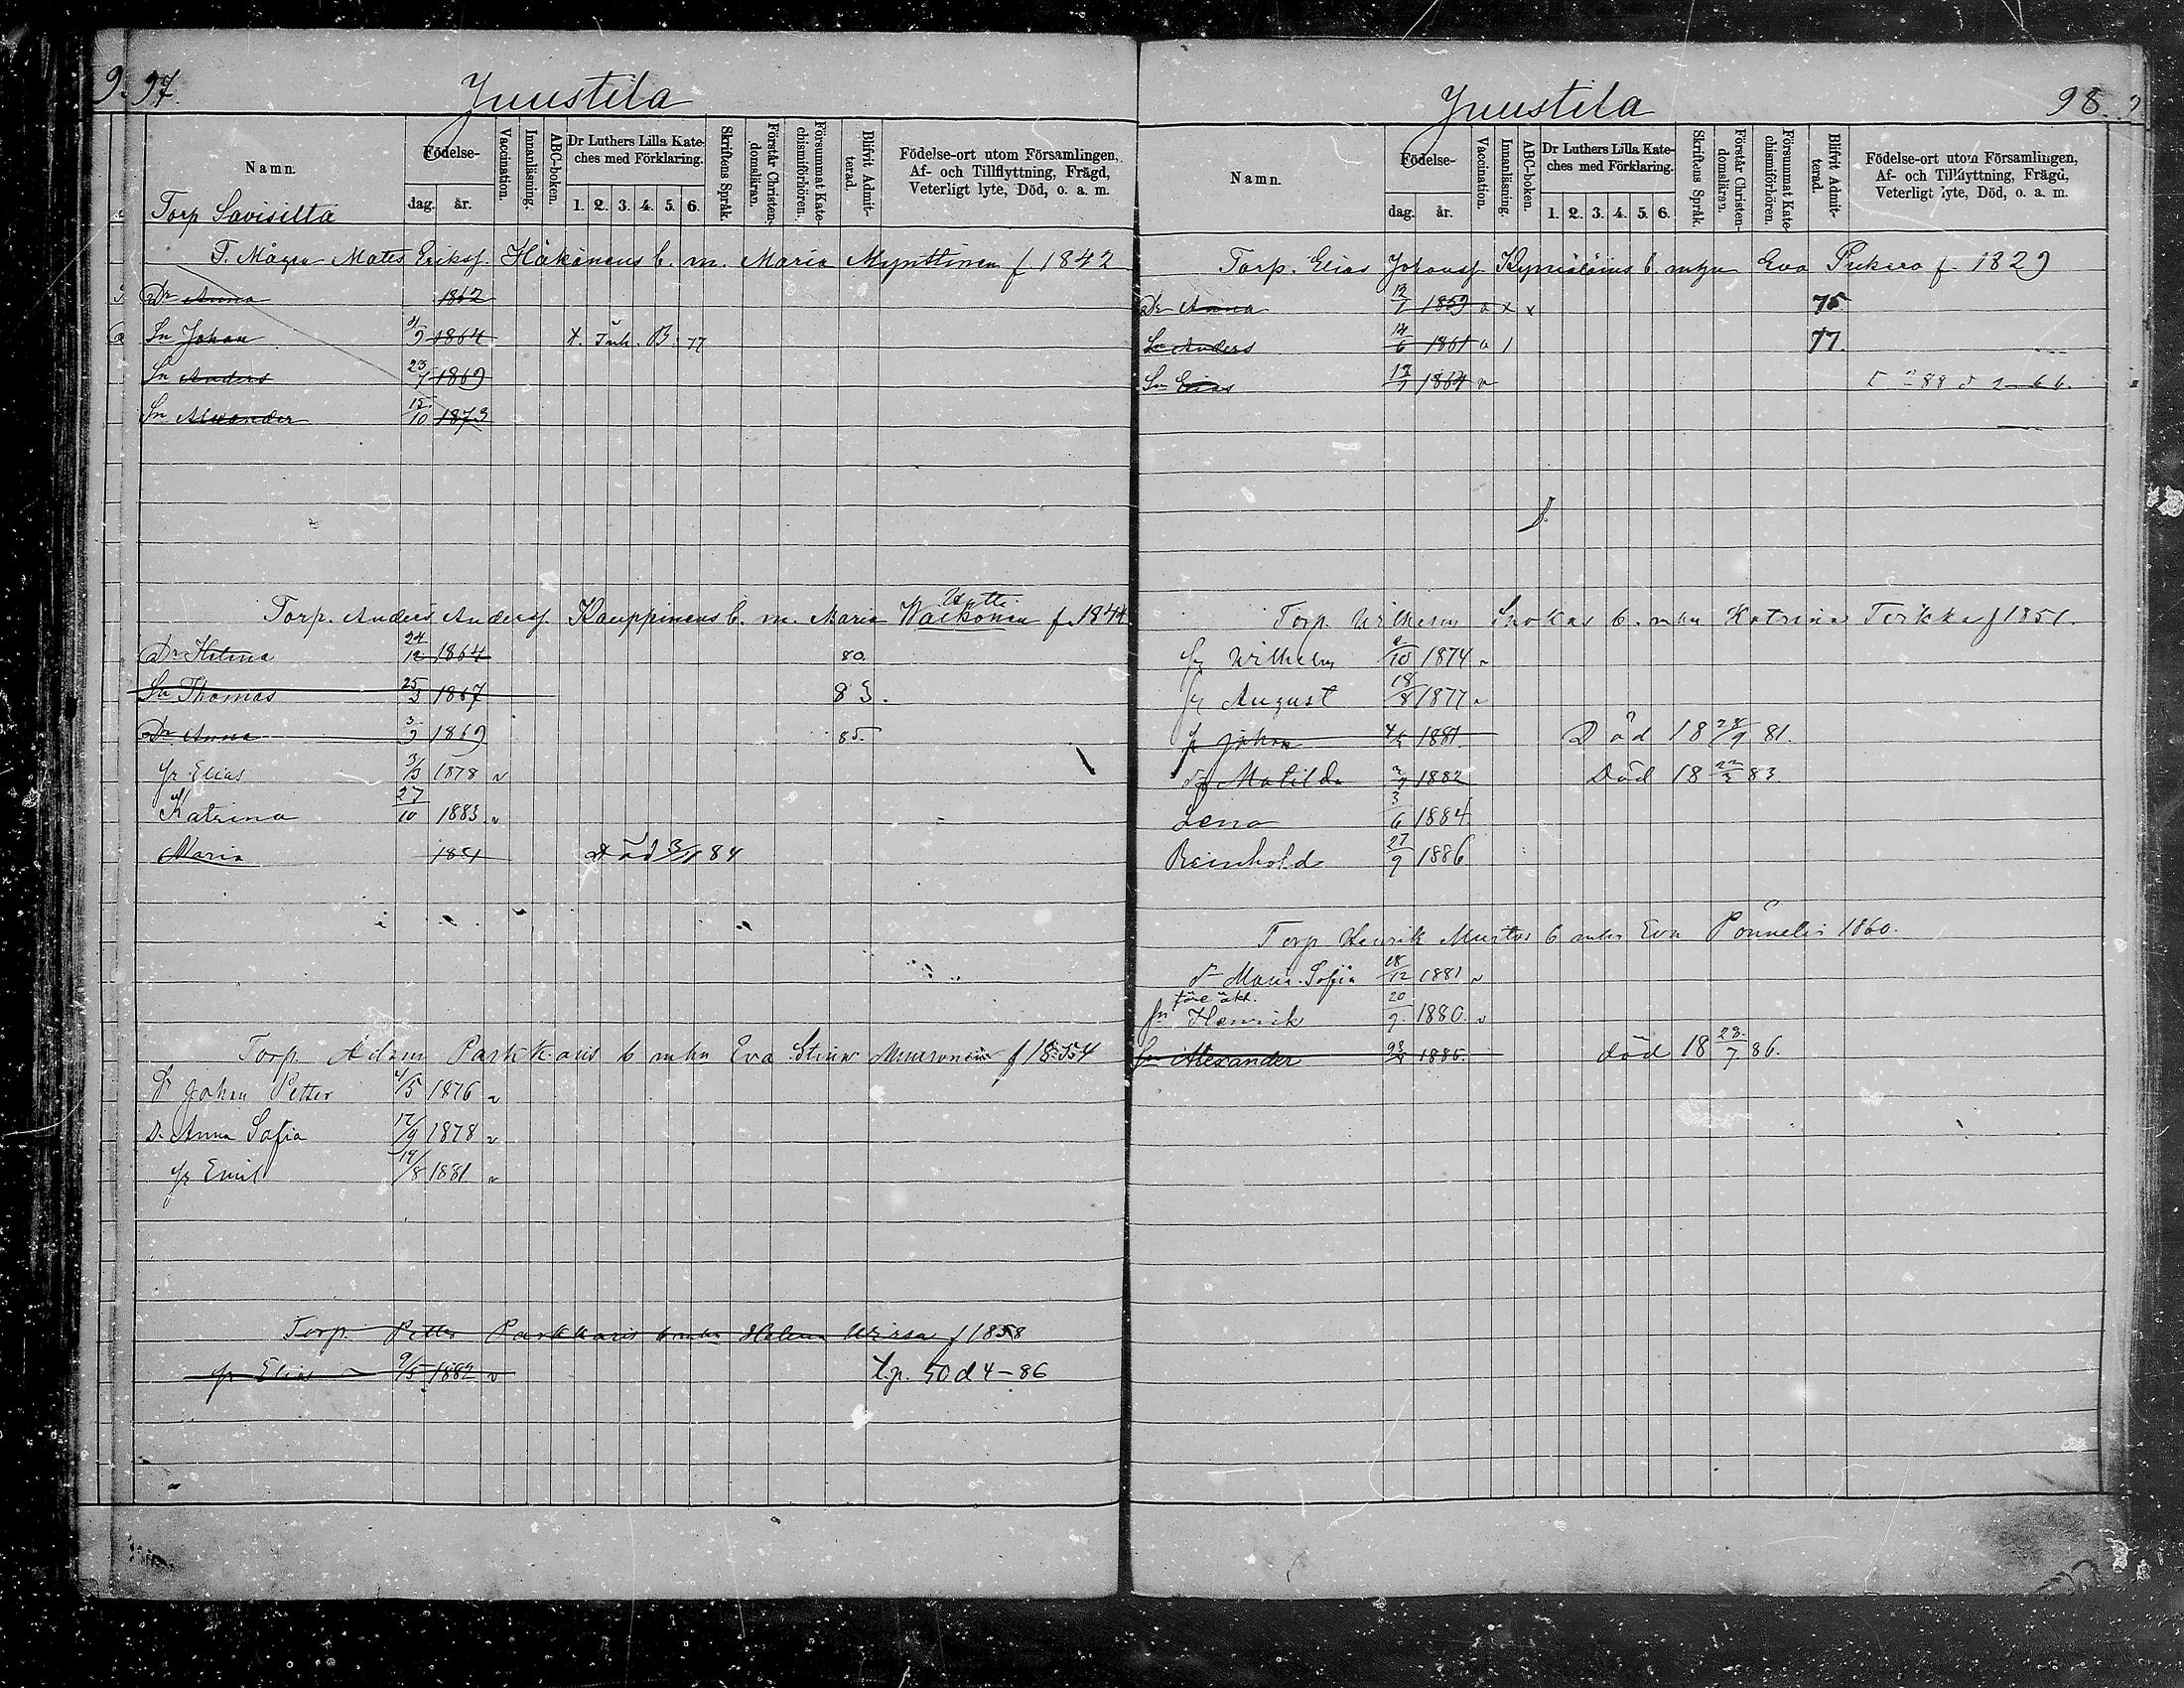 97.
Juustila
Namn.
Födelse-
dag.
år.
Vaccination.
Innanläsning.
ABC-boken.
Dr Luthers Lilla Kate-
ches med Förklaring.
1. 2. 3. 4. 5. 6.
Skriftens Språk.
Förstår Christen-
domsläran.
Försummat Kate-
chismiförhören.
Blifvit Admit-
terad.
Födelse-ort utom Församlingen,
Af- och Tillflyttning, Frägd,
Veterligt lyte, Död, o. a. m.
Torp Savisilta
T. Mågen Mats Erikss. Häkänens b. m. Maria Mynttinen f 1842
Dr Anna 1862
Sn Johan 9 1864 B. 77
Sn Anders 23/7 1869
Sn Alexander 15/10 1873
Torp. Anders Anderss. Kauppinens b. m. Maria Wackonen f. 1844
Dr Helena 24/12 1864 80.
Sn Thomas 25/3 1867 83.
Dr Anna 3/9 1869 85.
Sn Elias 3/3 1878 v
Katrina 27/10 1883 v
Maria 1881 Död 84
Torp. Adam Parkkaris b mhu Eva Stina Mursonen f 1854
Sn Johan Petter 4/5 1876 v
D. Anna Sofia 12/9 1878 v
Sn Emil 19/8 1881 v
Torp. Petter Parkkaris b mhu Helena Wirsa f 1858
Sn Elias 9/5 1882 v t.p. 50 d 4-86
Juustila
98.
Namn.
Födelse-
dag.
år.
Vaccination.
Innanläsning.
ABC-boken.
Dr Luthers Lilla Kate-
ches med Förklaring.
1. 2. 3. 4. 5. 6.
Skriftens Språk.
Förstår Christen-
domsläran.
Försummat Kate-
chismiförhören.
Blifvit Admit-
terad.
Födelse-ort utom Församlingen,
Af- och Tillflyttning, Frägd,
Veterligt lyte, Död, o. a. m.
Torp. Elias Johanss. Kymäläins b. mhu Eva Pukero f. 1829
Dr Anna 1859 x x 75.
Sn Anders 14/6 1861 77.
Sn Elias 1864 v
Torp. Wilhelm Snokas b. mhu Katrina Torkkel f 1851.
Sn Wilhelm 10 1874 v
Sn August 18/8 1877 v
Sn Johan 1881. Död 18 28/9 81.
Dr Matilda 1882 Död 18 22/3 83.
Lena 3/6 1884.
Reinhold 27/9 1886
Torp Henrik Mustas b mhu Eva Pönneli 1860.
Dr Maria Sofia 18/12 1881 v
före äkt.
Sn Henrik 20/9 1880. v
Sn Alexander 1885. död 18 23/7 86.